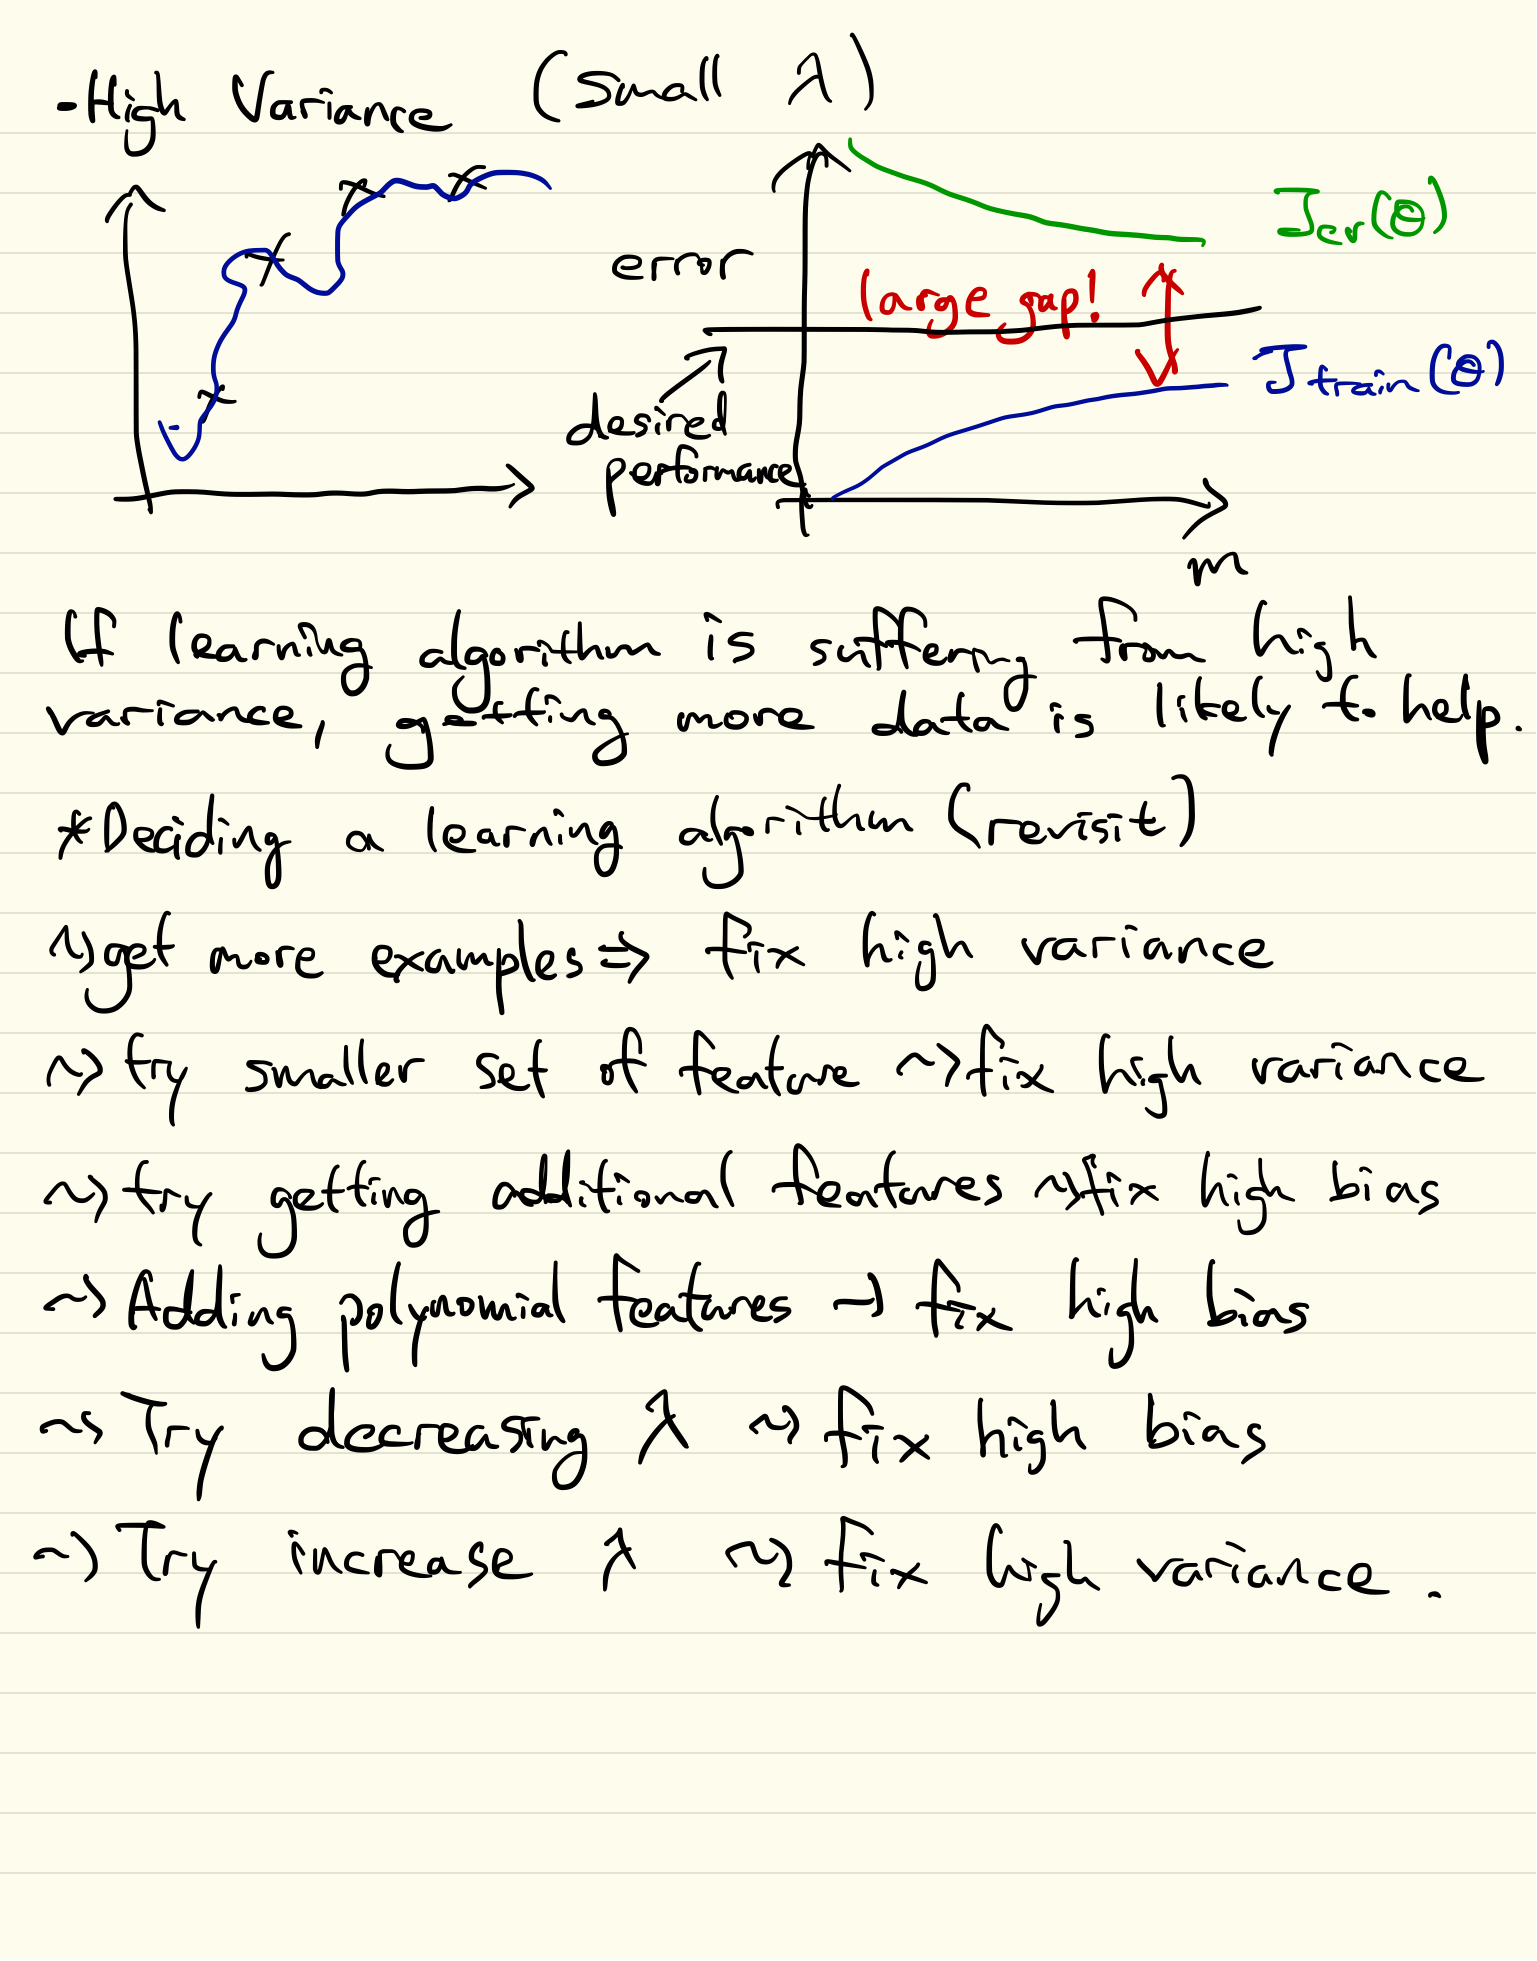 -High Variance (small λ)
error
J_cv(θ)
large gap!
J_train(θ)
desired
performance
m
If learning algorithm is suffering from high
variance, getting more data is likely to help.
*Deciding a learning algorithm (revisit)
~> get more examples ⇒ fix high variance
~> try smaller set of feature ~> fix high variance
~> try getting additional features ~> fix high bias
~> Adding polynomial features → fix high bias
~> Try decreasing λ ~> fix high bias
~> Try increase λ ~> fix high variance.